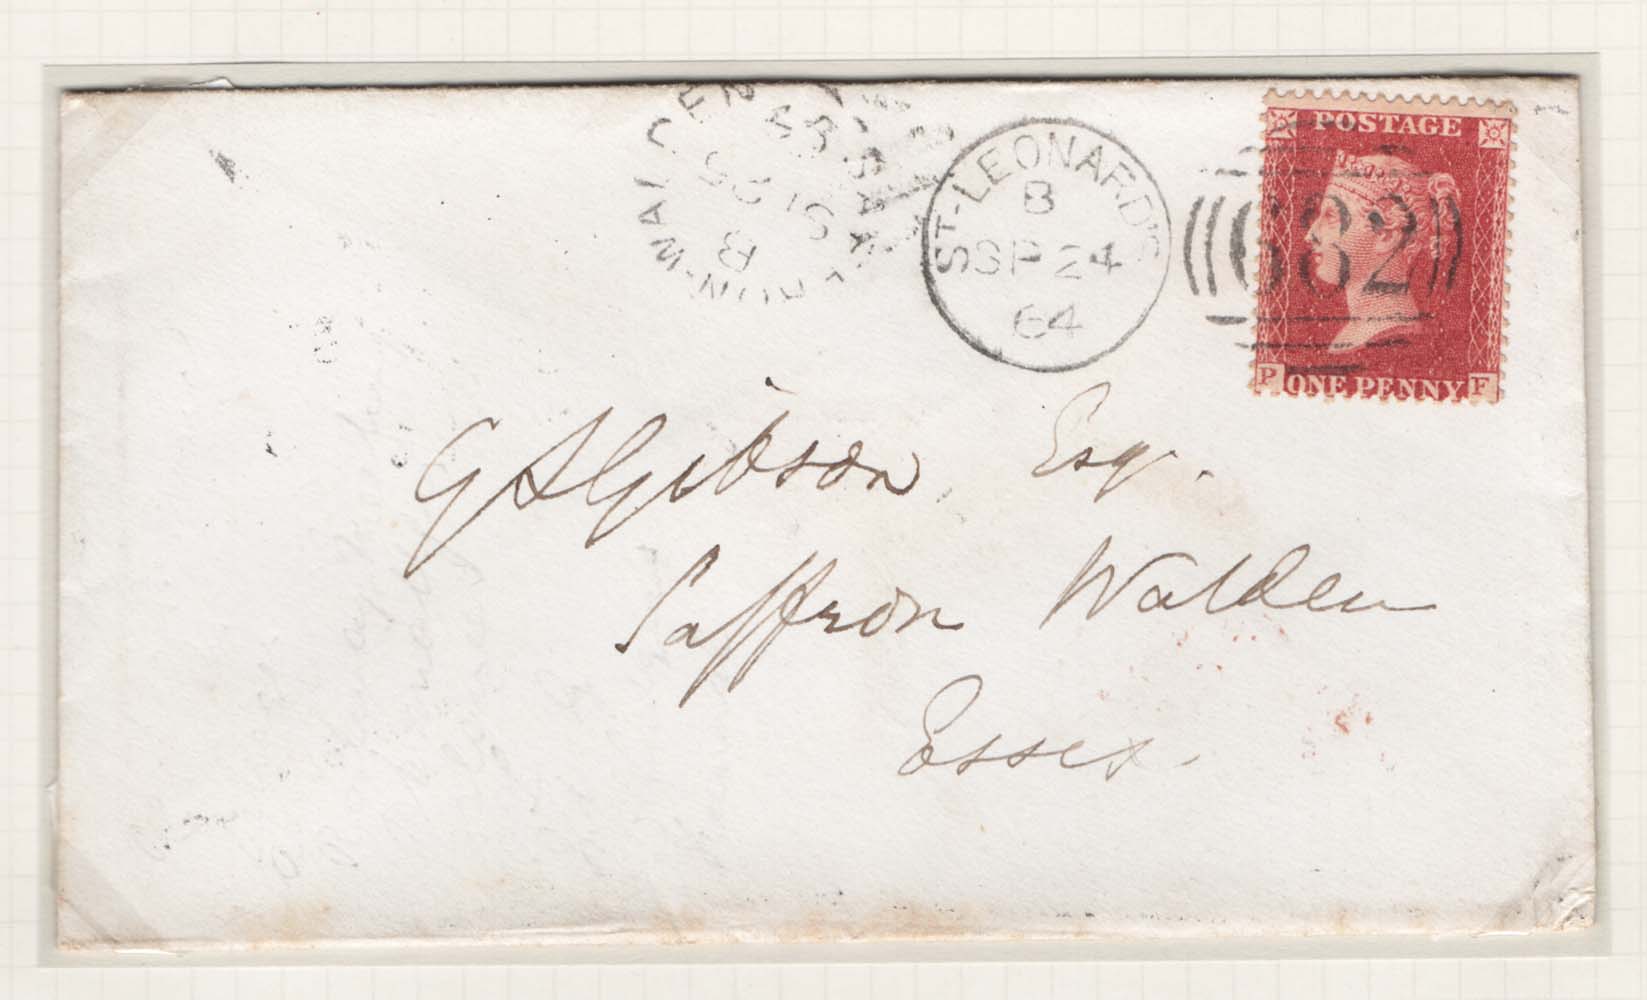 SAFFRON-WALDEN
B
SP 25
ST-LEONARD'S
B
SP 24
64
682
POSTAGE
P ONE PENNY F
G S Gibson Esq.
Saffron Walden
Essex.